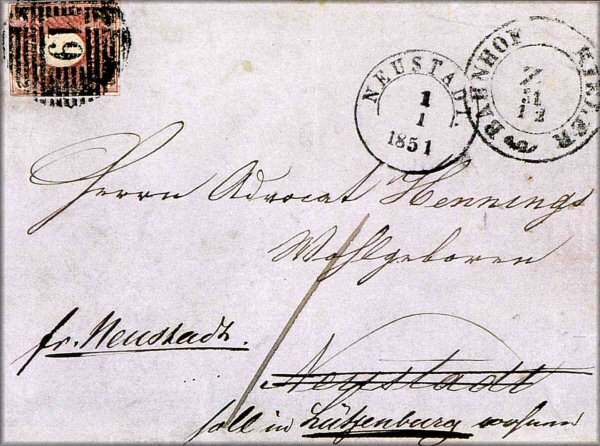 9
NEUSTADT.
1
1
1851
KIELER BAHNHOF
Z
31
12
Herrn Advocat Hennings
Wohlgeboren
fr. Neustadt.
Neustadt
soll in Lütjenburg wohnen